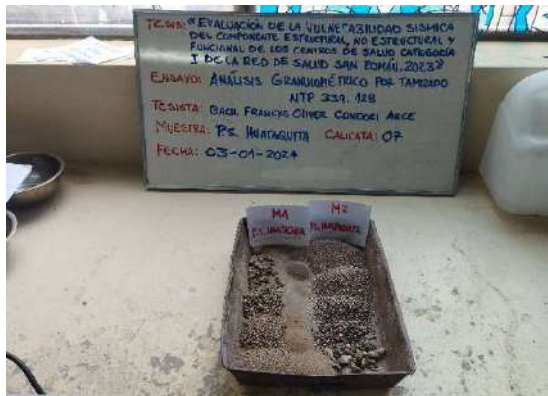 TESIS: "EVALUACIÓN DE LA VULNERABILIDAD SISMICA
DEL COMPONENTE ESTRUCTURAL, NO ESTRUCTURAL Y
FUNCIONAL DE LOS CENTROS DE SALUD CATEGORÍA
I DE LA RED DE SALUD SAN ROMÁN, 2023"
ENSAYO: ANÁLISIS GRANULOMÉTRICO POR TAMIZADO
NTP 339.128
TESISTA: BACH. FRANCYS OLIVER CONDORI ARCE
MUESTRA: P.S. HUATAQUITA CALICATA: 07
FECHA: 03-01-2024
M1
M2